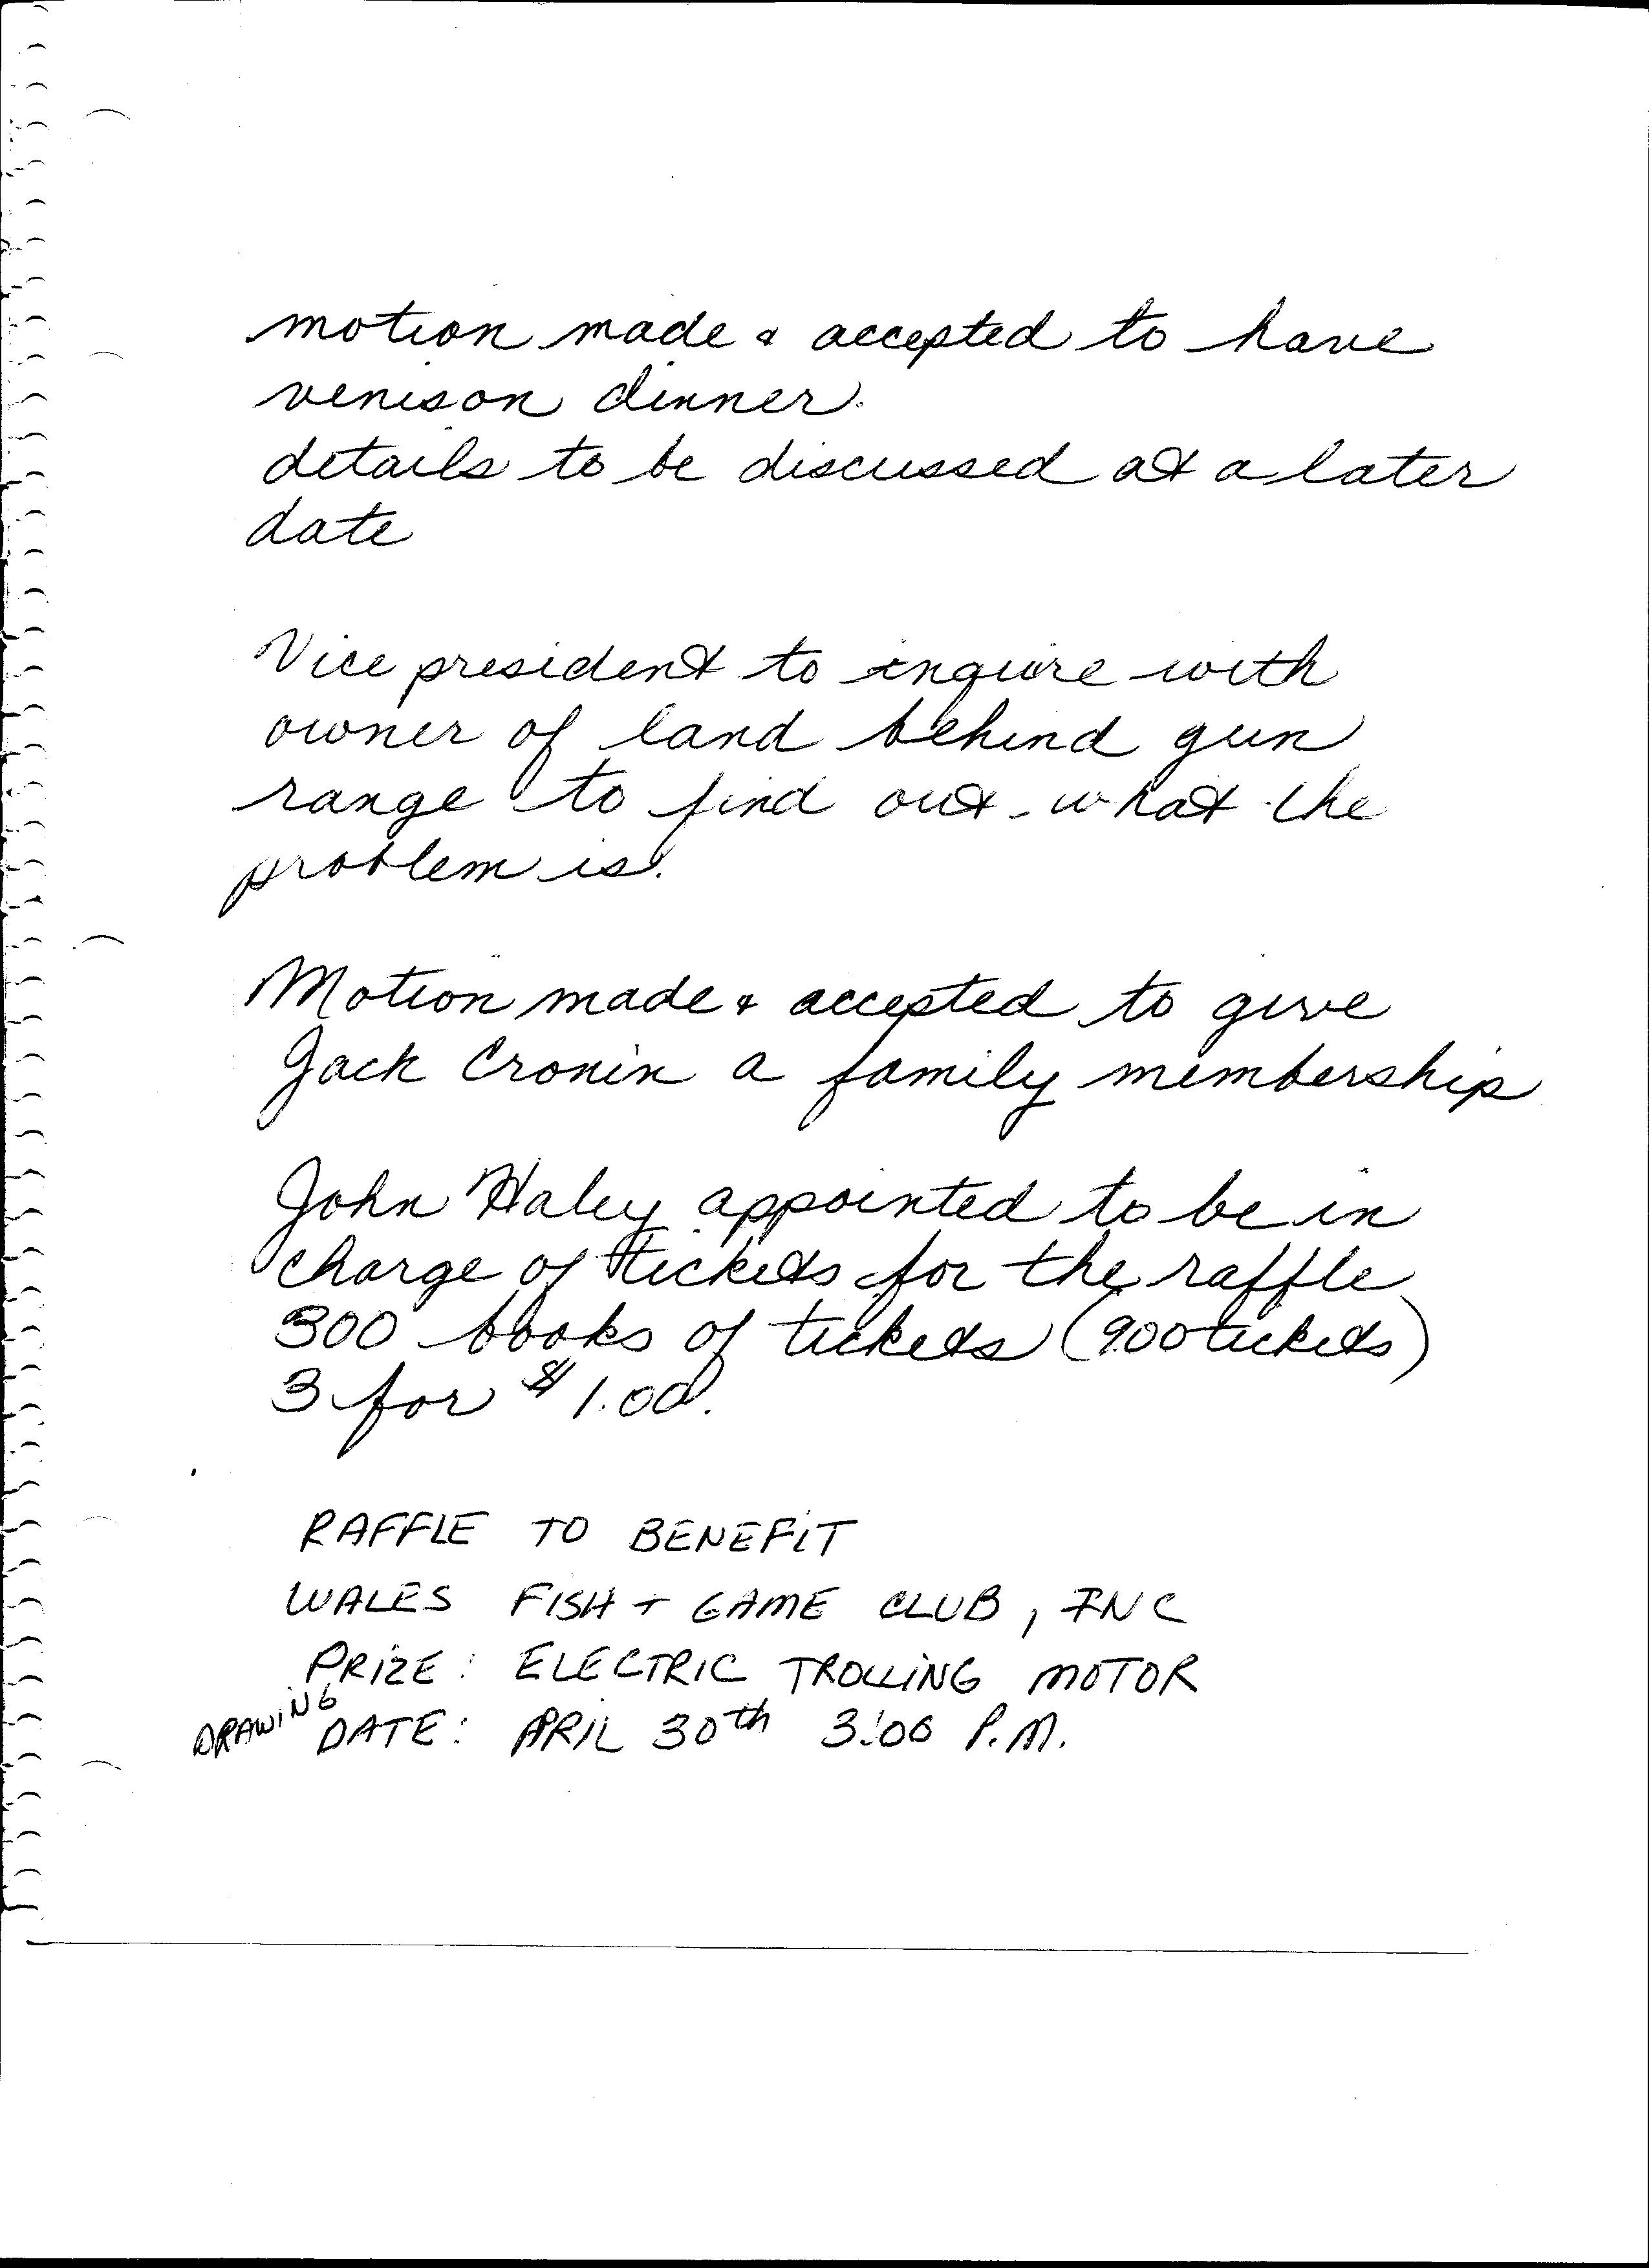 motion made & accepted to have
venison dinner.
details to be discussed at a later
date
Vice president to inquire with
owner of land behind gun
range to find out what the
problem is.
Motion made & accepted to give
Jack Cronin a family membership
John Haley appointed to be in
charge of tickets for the raffle
300 books of tickets (900 tickets)
3 for $1.00.
RAFFLE TO BENEFIT
WALES FISH + GAME CLUB, INC
PRIZE: ELECTRIC TROLLING MOTOR
DRAWING DATE: APRIL 30th 3:00 P.M.